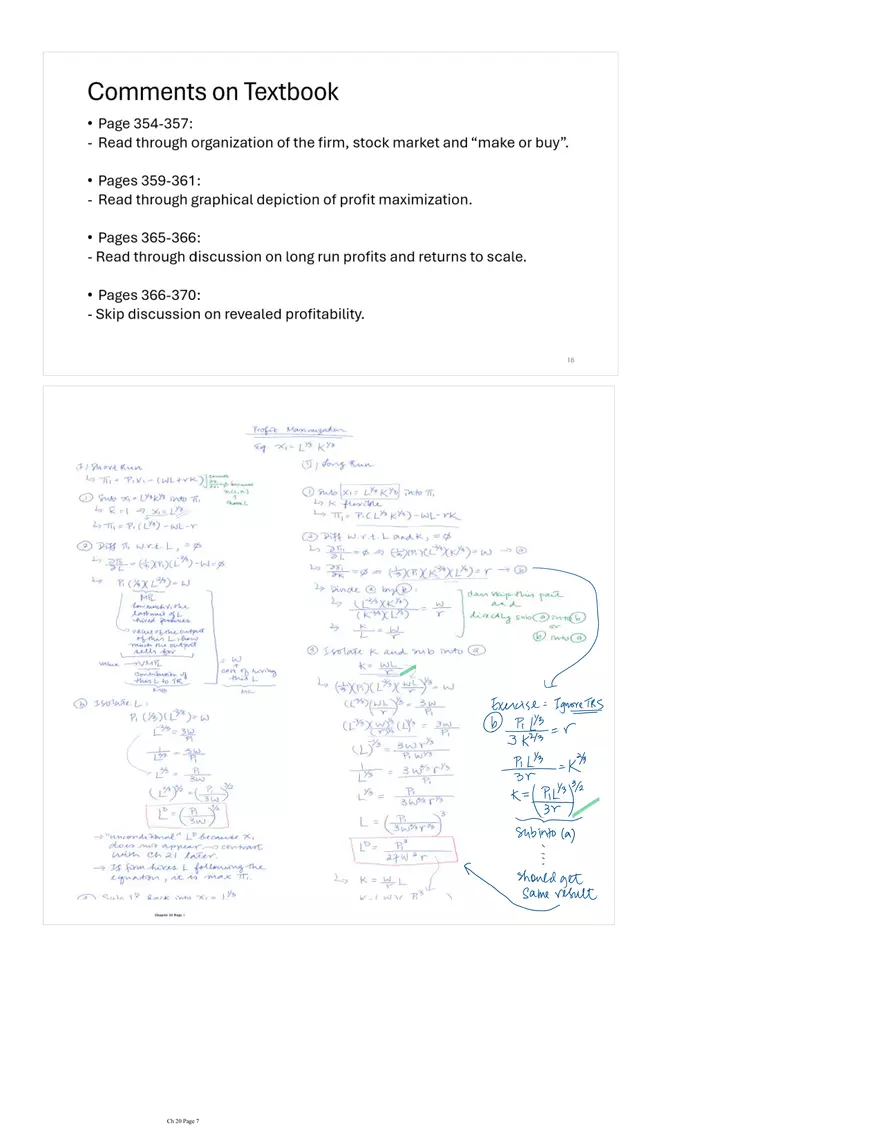 Comments on Textbook
• Page 354-357:
- Read through organization of the firm, stock market and “make or buy”.
• Pages 359-361:
- Read through graphical depiction of profit maximization.
• Pages 365-366:
- Read through discussion on long run profits and returns to scale.
• Pages 366-370:
- Skip discussion on revealed profitability.
Profit Maximization
Eg. x₁ = L^⅓ K^⅓
(I) Short Run
↳ π₁ = P₁x₁ - (WL + rK)
① Sub x₁ = L^⅓K^⅓ into π₁
↳ π₁ = P₁(L^⅓) - WL - r
② Diff π₁ w.r.t. L, = ø
↳ ∂π₁/∂L = (⅓)(P₁)(L^-⅔) - W = ø
↳ P₁(⅓)(L^-⅔) = W
MPL
value of the output
of this L: how
much the output
sells for
value → VMPL
contribution of
this L to TR
= W
cost of hiring
this L
Isolate L:
P₁(⅓)(L^-⅔) = W
L^-⅔ = 3W/P₁
1/L^⅔ = 3W/P₁
L^⅔ = P₁/3W
(L^⅔)^3/2 = (P₁/3W)^3/2
L^D = (P₁/3W)^3/2
→ "unconditional" L^D because x₁
does not appear → contrast
with Ch 21 later.
→ If firm hires L following the
equation, it is max π₁.
(II) Long Run
① Sub x₁ = L^⅓K^⅓ into π₁
↳ K flexible
↳ π₁ = P₁(L^⅓K^⅓) - WL - rK
② Diff w.r.t. L and K, = ø
↳ ∂π₁/∂L = ø ⇒ (⅓)(P₁)(L^-⅔)(K^⅓) = W → ⓐ
↳ ∂π₁/∂K = ø ⇒ (⅓)(P₁)(K^-⅔)(L^⅓) = r → ⓑ
↳ Divide ⓐ by ⓑ:
↳ (L^-⅔)(K^⅓)/(K^-⅔)(L^⅓) = W/r
↳ K/L = W/r
can skip this part
and
directly sub ⓐ into ⓑ
or
ⓑ into ⓐ
③ Isolate K and sub into ⓐ
K = WL/r
↳ (⅓)(P₁)(L^-⅔)(WL/r)^⅓ = W
(L^-⅔)(WL/r)^⅓ = 3W/P₁
(L^-⅔)(W)^⅓/(r)^⅓ (L)^⅓ = 3W/P₁
(L)^-⅓ = 3W r^⅓/P₁ W^⅓
1/L^⅓ = 3W^⅔ r^⅓/P₁
L^⅓ = P₁/3W^⅔ r^⅓
L = (P₁/3W^⅔ r^⅓)^3
L^D = P₁³/27W²r
↳ K = W/r L
Exercise = Ignore TRS
ⓑ P₁L^⅓/3K^⅔ = r
P₁L^⅓/3r = K^⅔
K = (P₁L^⅓/3r)^3/2
Sub into (a)
should get
same result
16
Chapter 20 Page 1
Ch 20 Page 7